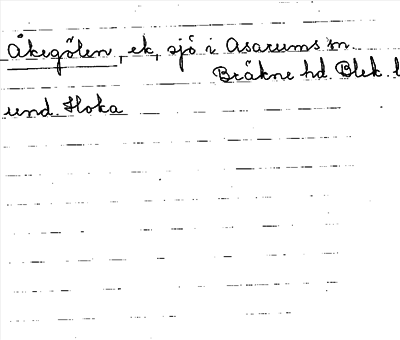 Åkegölen, ek, sjö i Asarums sn.
Bräkne hd. Blek. l
und. Hoka